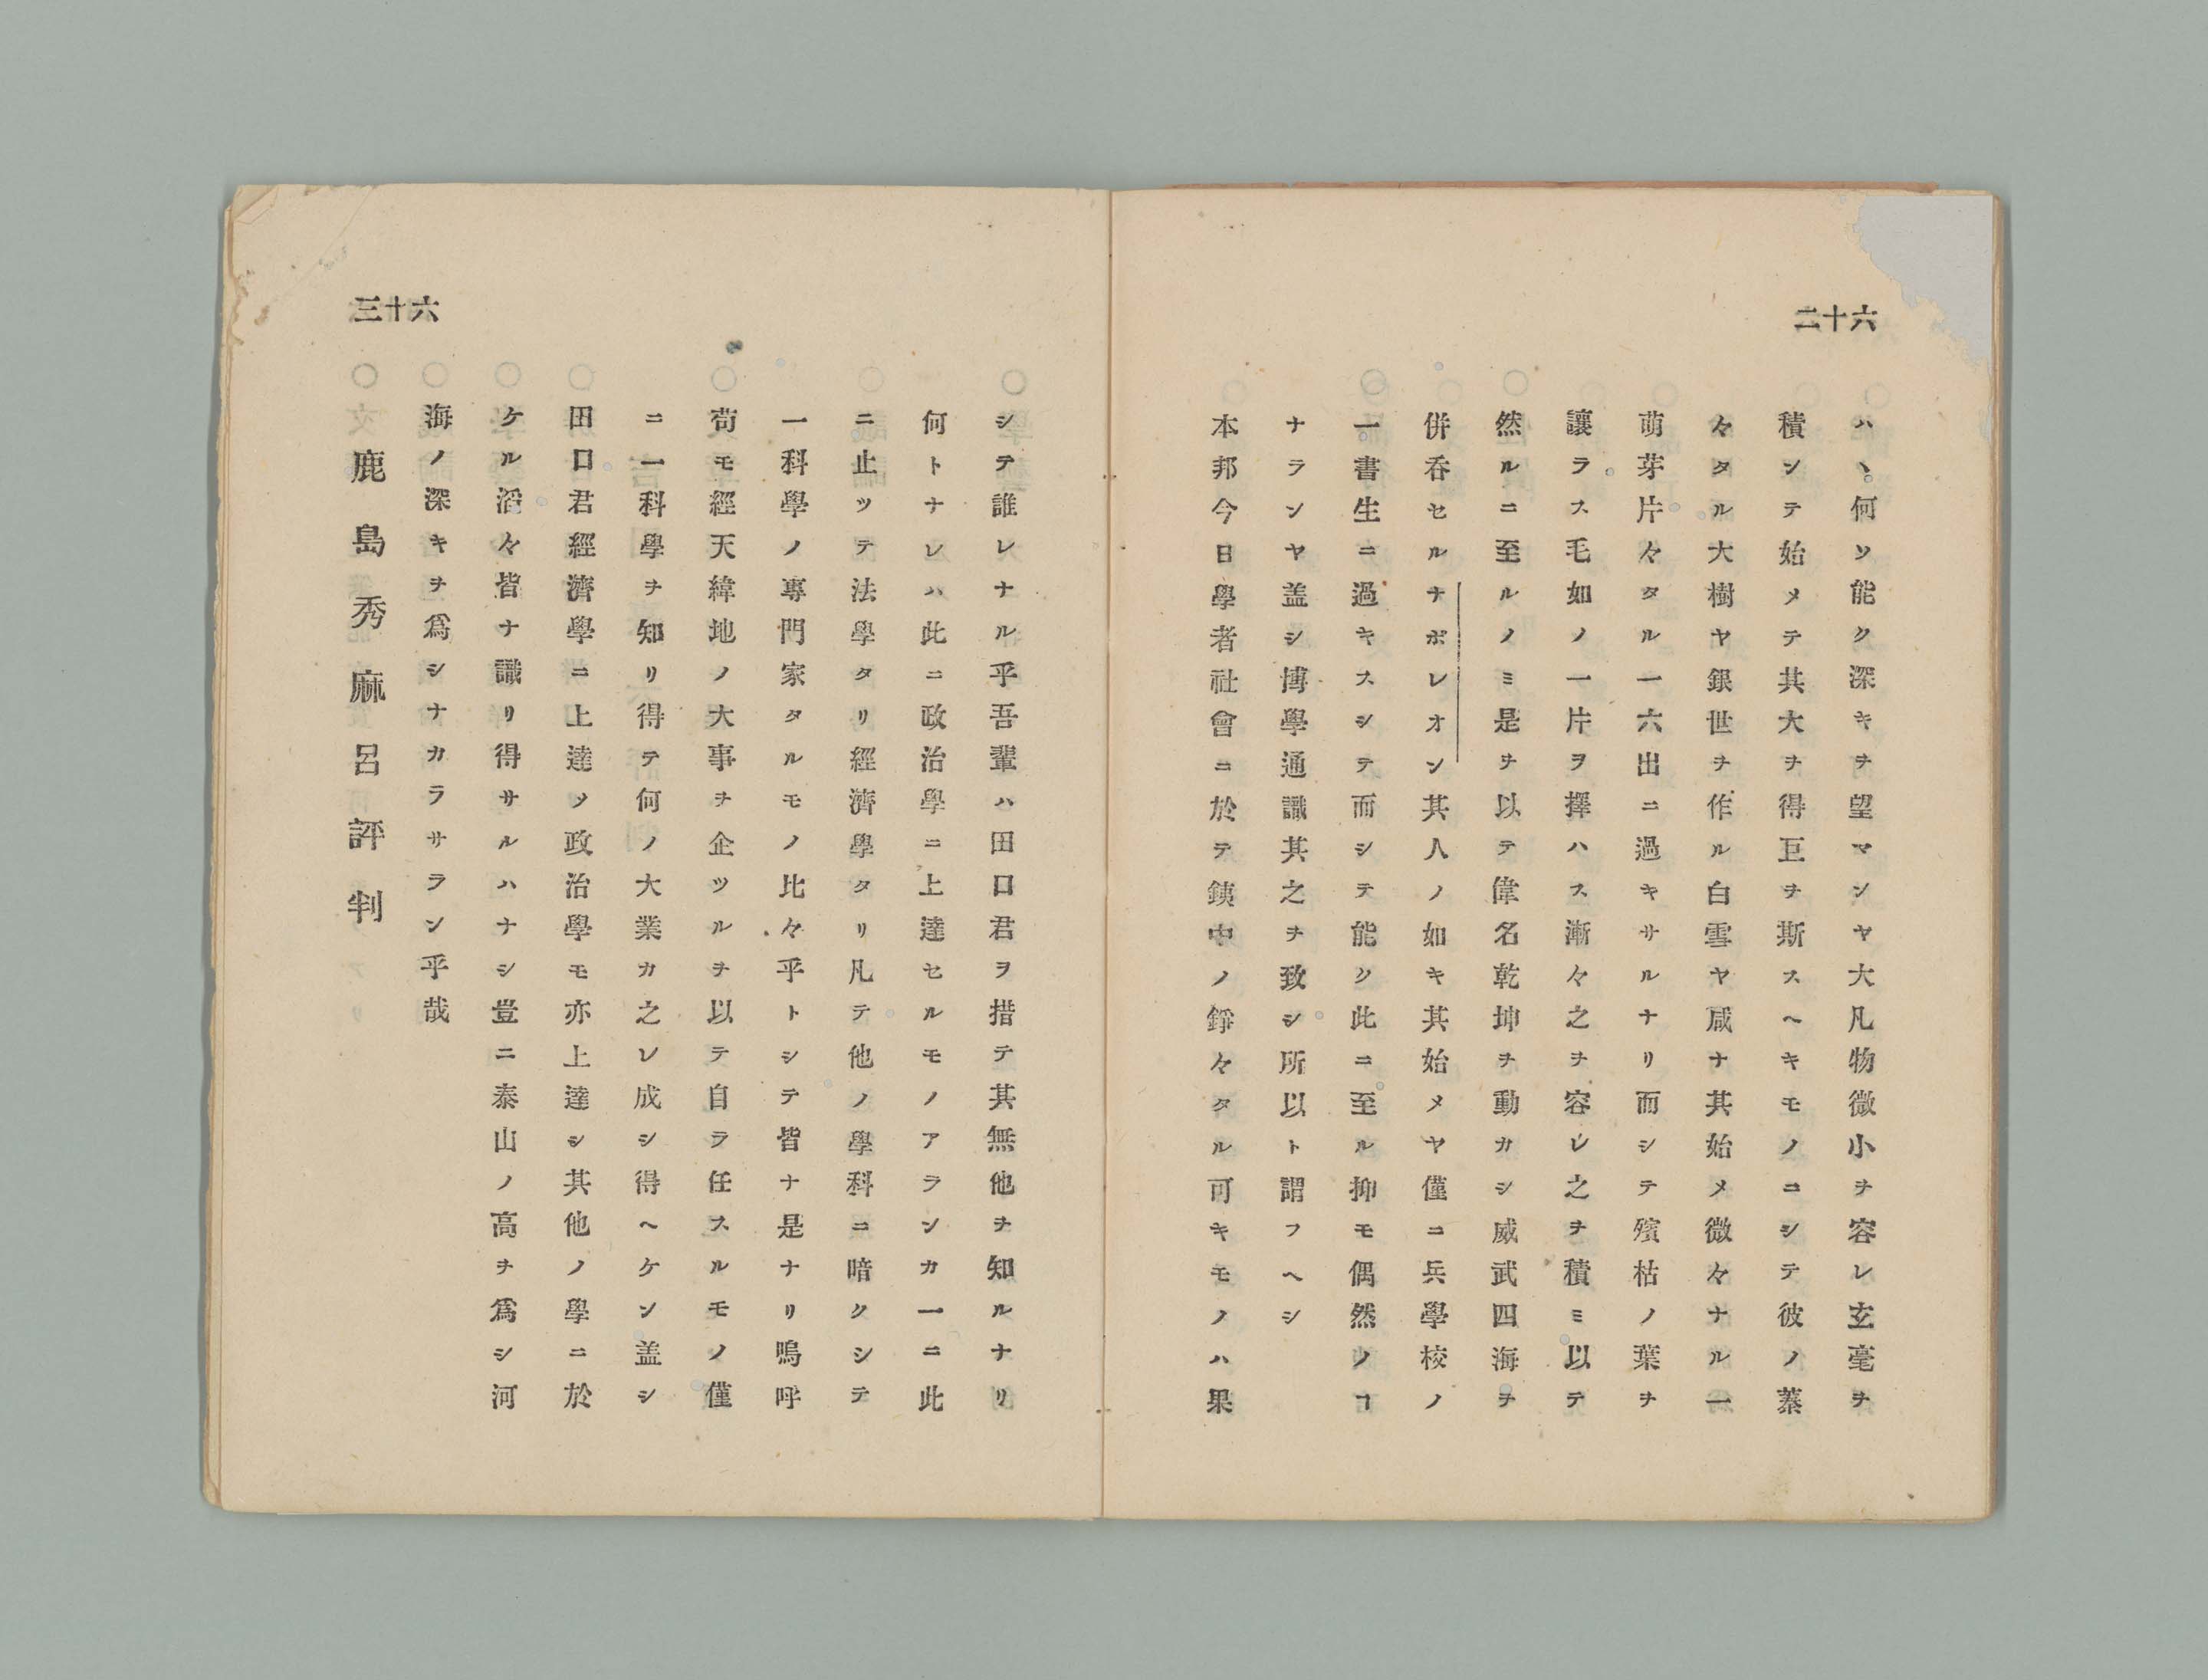 六十二
ハヽ何ソ能ク深キヲ望マンヤ大凡物微小ヲ容レ玄毫ヲ
積ンテ始メテ其大ヲ得巨ヲ斯スヘキモノニシテ彼ノ蓁
々タル大樹ヤ銀世ヲ作ル白雪ヤ咸ナ其始メ微々ナル一
萌芽片々タル一六出ニ過キサルナリ而シテ殯枯ノ葉ヲ
讓ラス毛如ノ一片ヲ擇ハス漸々之ヲ容レ之ヲ積ミ以テ
然ルニ至ルノミ是ヲ以テ偉名乾坤ヲ動カシ威武四海ヲ
併呑セルナポレオン其人ノ如キ其始メヤ僅ニ兵學校ノ
一書生ニ過キスシテ而シテ能ク此ニ至ル抑モ偶然ノヿ
ナランヤ盖シ博學通識其之ヲ致シ所以ト謂フヘシ
本邦今日學者社會ニ於テ銕中ノ錚々タル可キモノハ果
六十三
シテ誰レナル乎吾輩ハ田口君ヲ措テ其無他ヲ知ルナリ
何トナレハ此ニ政治學ニ上達セルモノアランカ一ニ此
ニ止ツテ法學タリ經濟學タリ凡テ他ノ學科ニ暗クシテ
一科學ノ專門家タルモノ比々乎トシテ皆ナ是ナリ嗚呼
苟モ經天緯地ノ大事ヲ企ツルヲ以テ自ラ任スルモノ僅
ニ一科學ヲ知リ得テ何ノ大業カ之レ成シ得ヘケン盖シ
田口君經濟學ニ上達メ政治學モ亦上達シ其他ノ學ニ於
ケル滔々皆ナ識リ得サルハナシ豈ニ泰山ノ高ヲ爲シ河
海ノ深キヲ爲シナカラサラン乎哉
鹿島秀麻呂評判